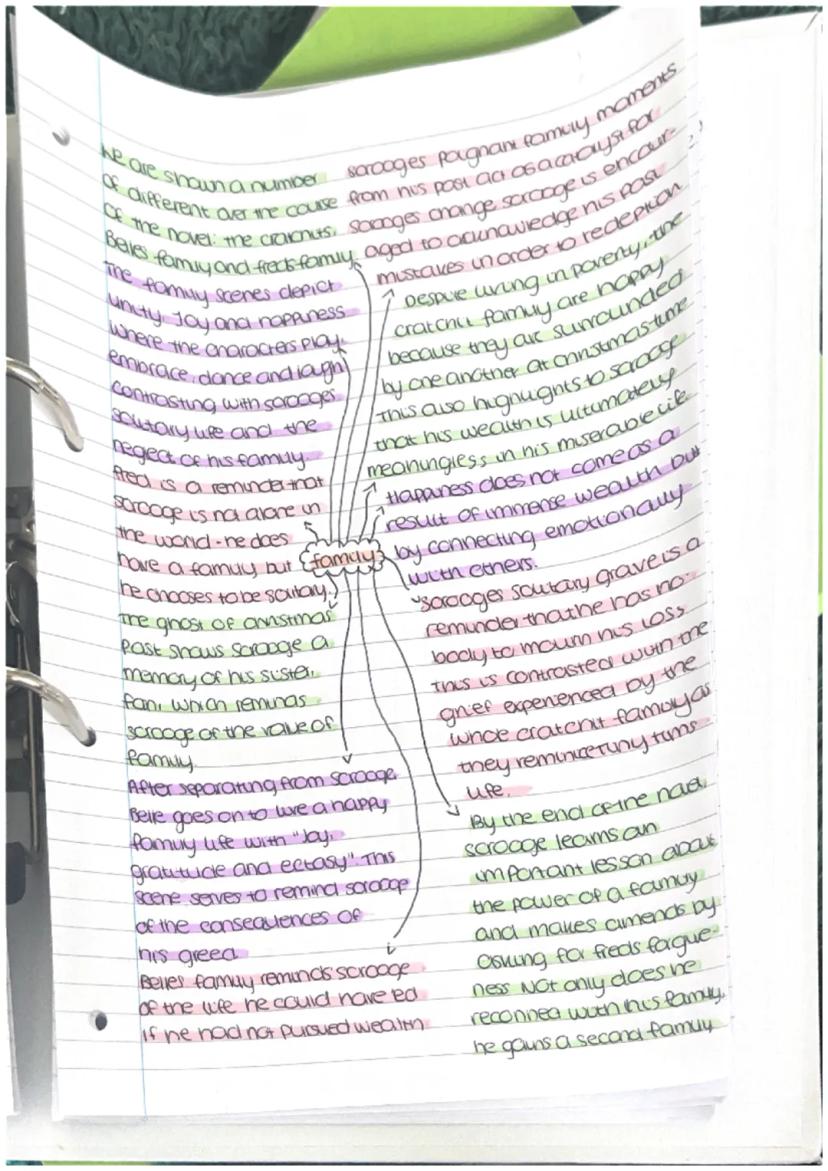 We are shown a number
of different over the course
of the novel: the cratchits,
Belles family and freds family.
The family scenes depict
unity, Joy and happiness
where the characters play,
embrace, dance and laugh
contrasting with scrooges
solutary life and the
neglect of his family.
fred is a reminder that
scrooge is not alone in
the world - he does
have a family, but
he chooses to be solitary.
The ghost of christmas
past shows scrooge a
memory of his sister,
fan, which reminds
scrooge of the value of
family.
After separating from scrooge,
Belle goes on to live a happy
family life with "Joy,
gratitude and ectasy". This
scene serves to remind scrooge
of the consequences of
his greed
Belles family reminds scrooge
of the life he could have led
if he had not pursued wealth
family
scrooges poignant family moments
from his past act as a catalyst for
scrooges change. scrooge is encour-
aged to acknowledge his past
mistakes in order to redeption
Despite living in poverty, the
cratchit family are happy
because they are surrounded
by one another at christmas time
This also highlights to scrooge
that his wealth is ultimately
meaningless in his miserable life.
Happiness does not come as a
result of immense wealth but
by connecting emotionally
with others.
scrooges solitary grave is a
reminder that he has no-
body to mourn his loss
This is contrasted with the
grief experienced by the
whole cratchit family as
they reminice tiny tims
life.
By the end of the novel,
scrooge learns an
important lesson about
the power of a family
and makes amends by
asking for freds forgive-
ness Not only does he
reconnect with his family,
he gains a second family